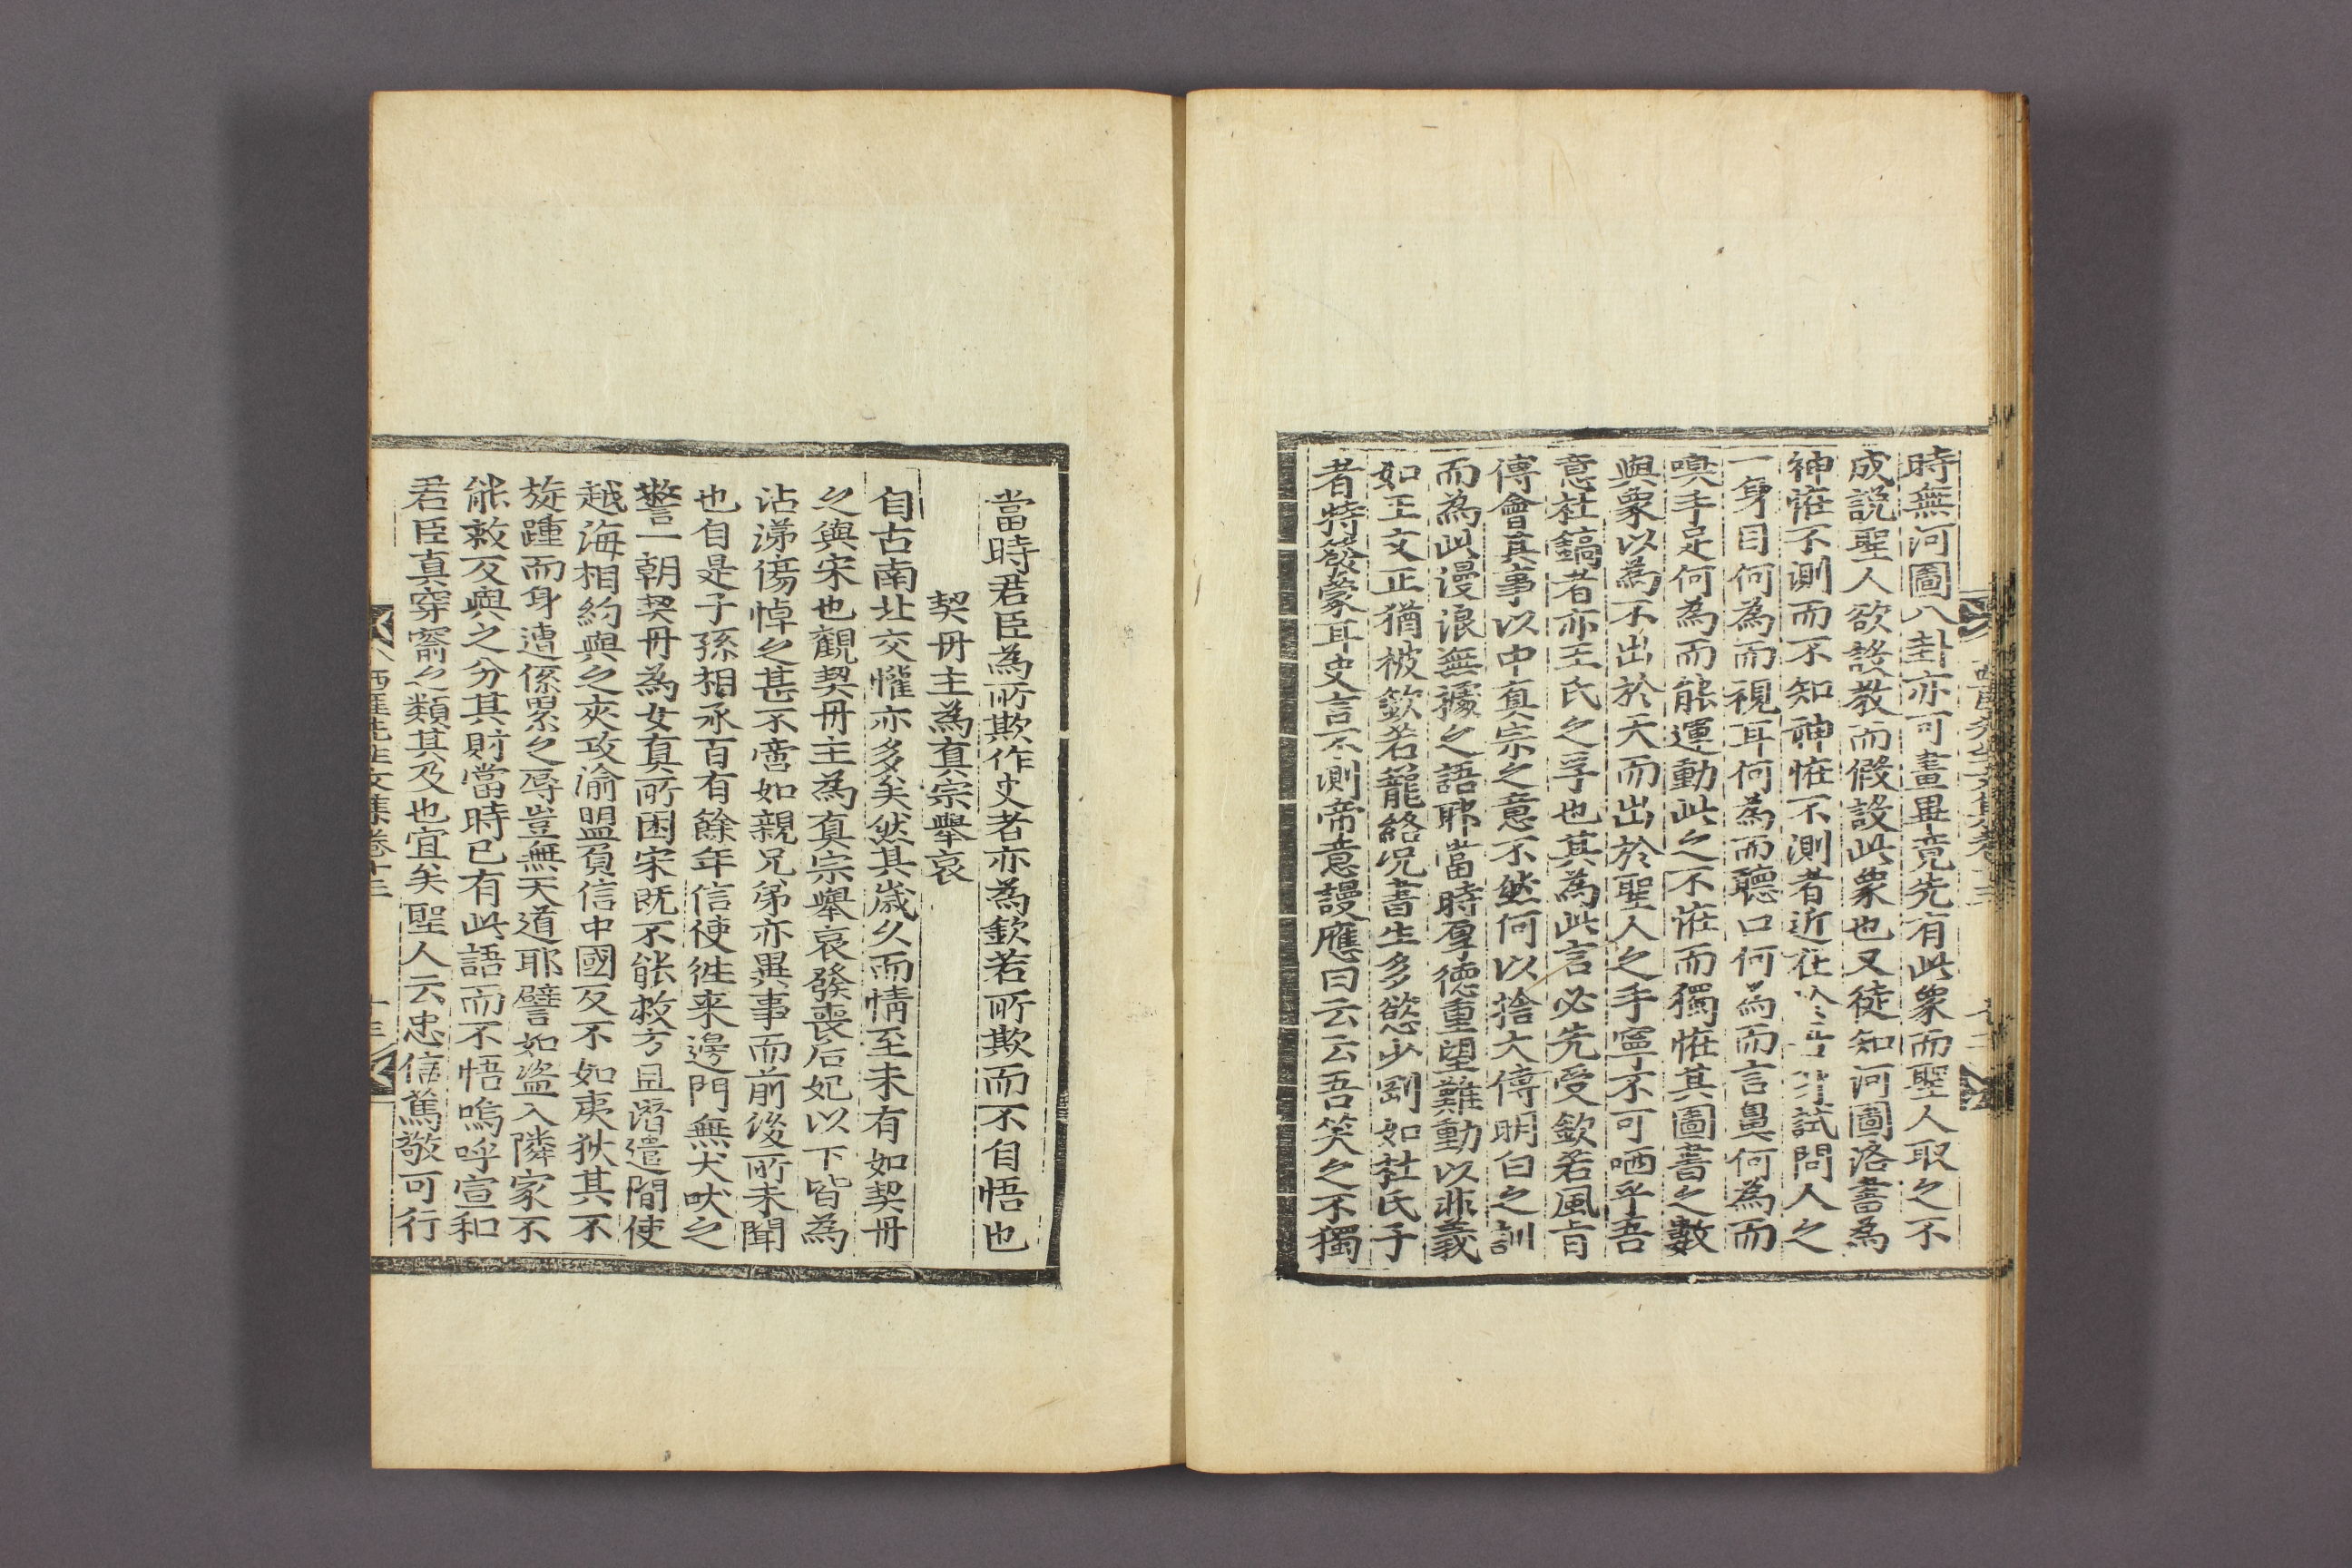 時無河圖八卦亦可畫畢竟先有此象而聖人取之不
成說聖人欲設教而假設此象也又徒知河圖洛書為
神恠不測而不知神恠不測者近在 試問人之
一身目何為而視耳何為而聽口何為而言鼻何為而
嗅手足何為而能運動此之不恠而獨恠其圖書之數
與象以為不出於天而出於聖人之手寧不可哂乎吾
意杜鎬者亦王氏之孚也其為此言必先受欽若風旨
傅會其事以中真宗之意不然何以捨大傳明白之訓
而為此謾浪無據之語耶當時厚德重望難動以非義
如王文正猶被欽若籠絡况書生多慾少剛如杜氏子
者特發蒙耳史言不測帝意謾應曰云云吾笑之不獨
當時君臣為所欺作史者亦為欽若所欺而不自悟也
契丹主為真宗舉哀
自古南北交懽亦多矣然其歲久而情至未有如契丹
之與宋也觀契丹主為真宗舉哀發喪后妃以下皆為
沾涕傷悼之甚不啻如親兄弟亦異事而前後所未聞
也自是子孫相承百有餘年信使徃来邊門無犬吠之
警一朝契丹為女真所困宋既不能救方且潛遣間使
越海相約與之夾攻渝盟負信中國反不如夷狄其不
旋踵而身遭係累之辱豈無天道耶譬如盗入隣家不
能救反與之分其財當時已有此語而不悟嗚呼宣和
君臣真穿窬之類其及也宜矣聖人云忠信篤敬可行
西厓先生文集卷十五